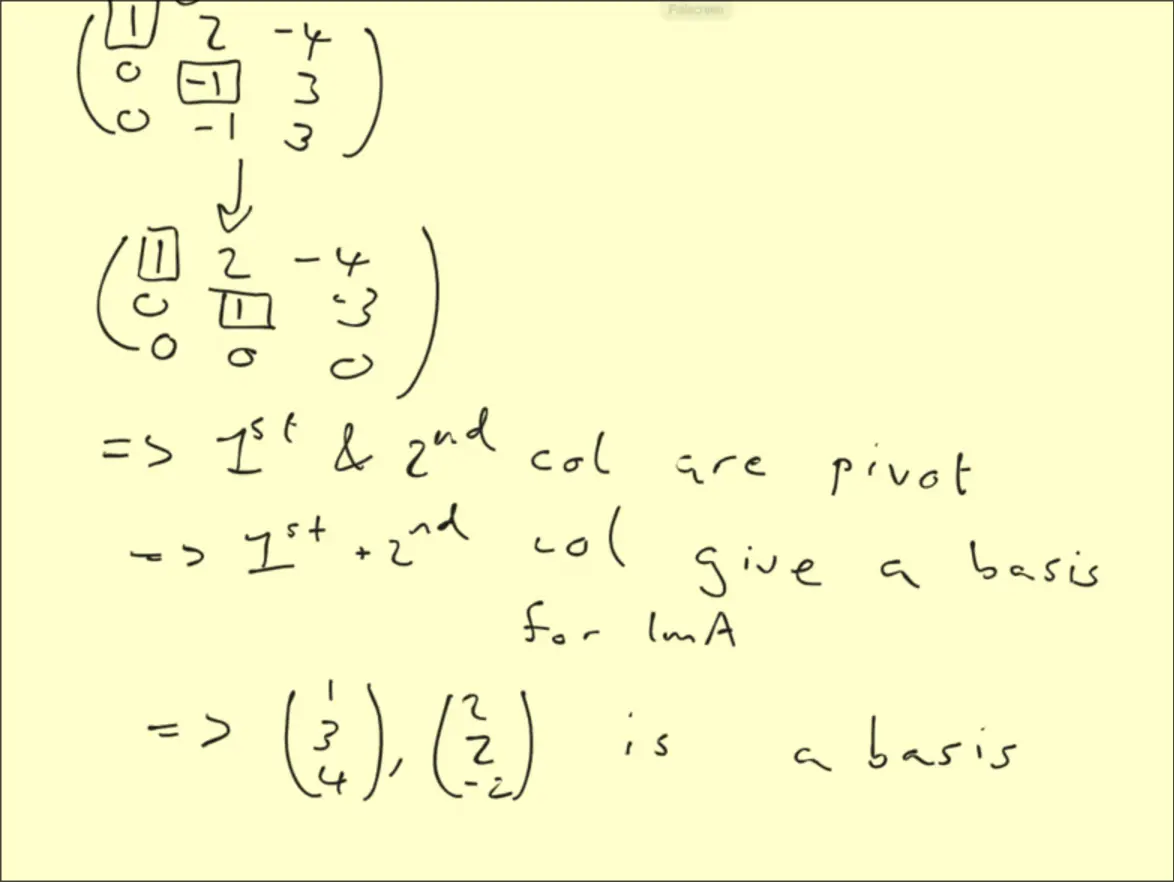 Fullscreen
1 2 -4
0 -1 3
0 -1 3
↓
1 2 -4
0 1 -3
0 0 0
=> 1st & 2nd col are pivot
=> 1st + 2nd col give a basis
for ImA
=> (1 3 4), (2 2 -2) is a basis